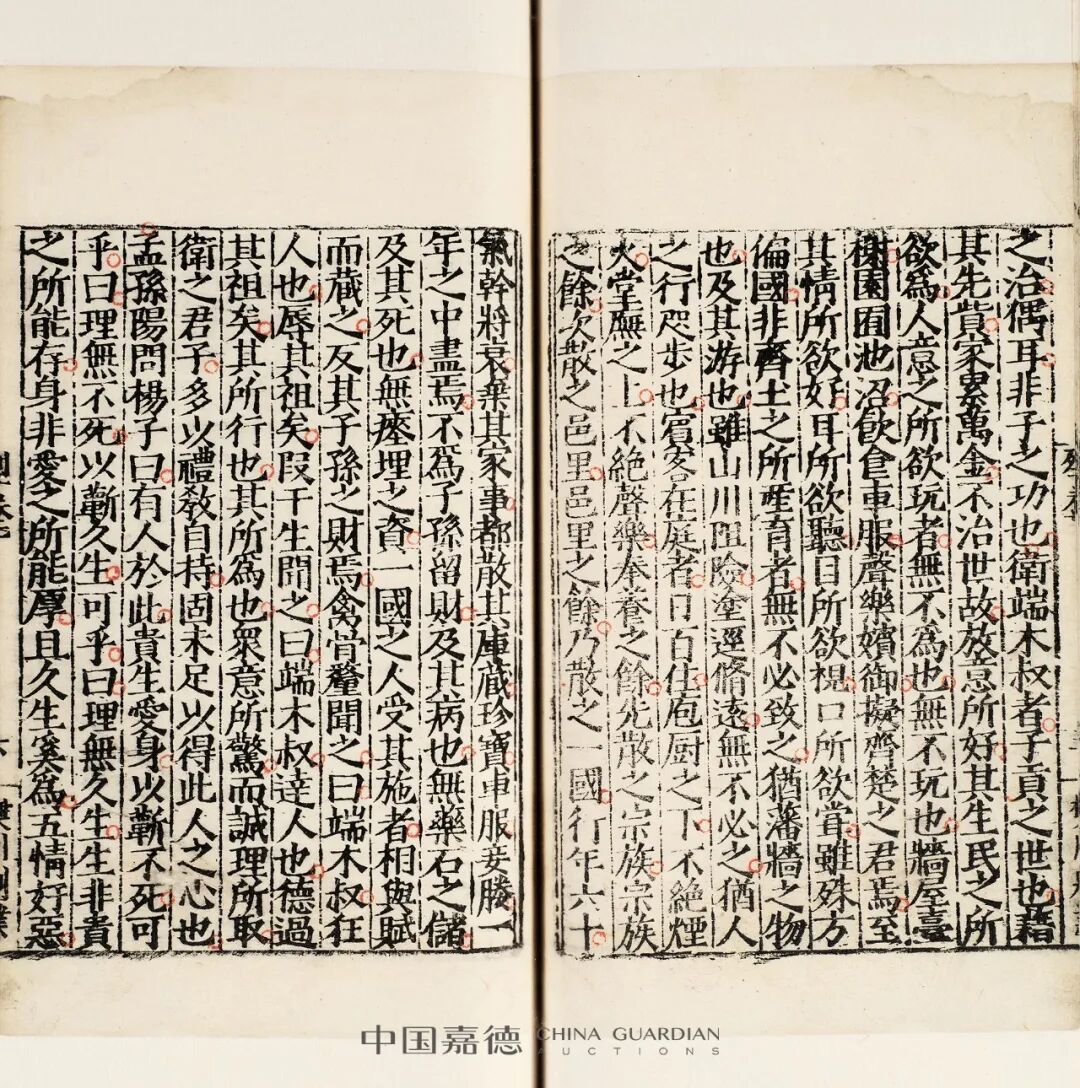 之治偶耳非子之功也衛端木叔者子貢之世也藉
其先貲家累萬金不治世故放意所好其生民之所
欲爲人意之所欲玩者無不爲也無不玩也牆屋臺
榭園囿池沼飲食車服聲樂嬪御擬齊楚之君焉至
其情所欲好耳所欲聽目所欲視口所欲嘗雖殊方
偏國非齊土之所產育者無不必致之猶藩牆之物
也及其游也雖山川阻險塗逕脩遠無不必之猶人
之行咫步也賓客在庭者日百住庖厨之下不絕煙
火堂廡之上不絕聲樂奉養之餘先散之宗族宗族
之餘次散之邑里邑里之餘乃散之一國行年六十
氣幹將衰棄其家事都散其庫藏珍寶車服妾媵一
年之中盡焉不爲子孫留財及其病也無藥石之儲
及其死也無瘞埋之資一國之人受其施者相與賦
而藏之反其子孫之財焉禽骨釐聞之曰端木叔狂
人也辱其祖矣段干生聞之曰端木叔達人也德過
其祖矣其所行也其所爲也衆意所驚而誠理所取
衛之君子多以禮教自持固未足以得此人之心也
孟孫陽問楊子曰有人於此貴生愛身以蘄不死可
乎曰理無不死以蘄久生可乎曰理無久生生非貴
之所能存身非愛之所能厚且久生奚爲五情好惡
中国嘉德 CHINA GUARDIAN
AUCTIONS